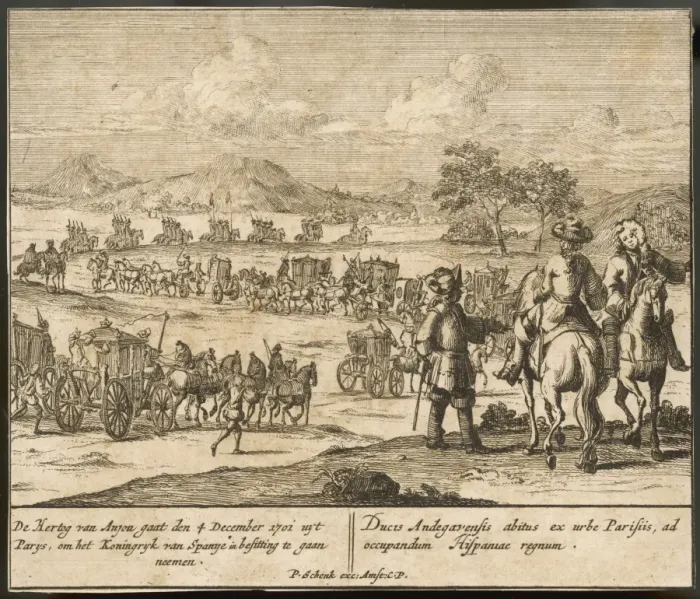 De Hertog van Anjou gaat den 4 December 1701 uyt
Parys, om het Koningryk van Spanje in besitting te gaan
neemen.
Ducis Andegavensis abitus ex urbe Parisiis, ad
occupandum Hispaniae regnum.
P. Schenk exc: Amst: C.P.